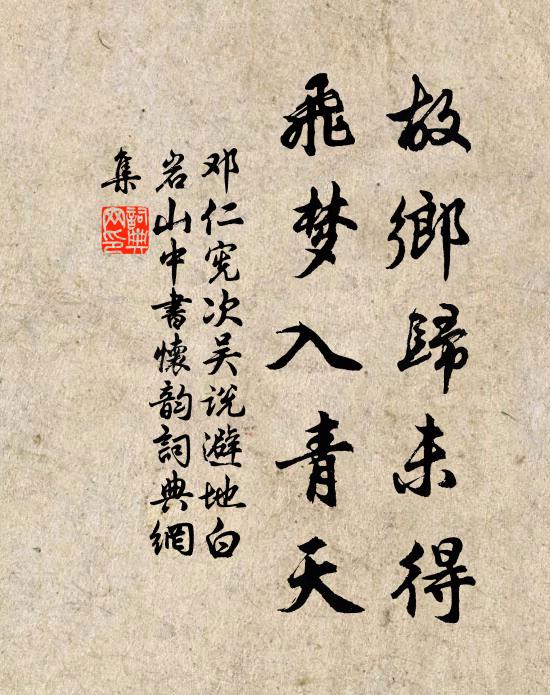 故鄉歸未得
飛梦入青天
邓仁宪次吴说避地白
岩山中書懷韵詞典網
集
詞典网印